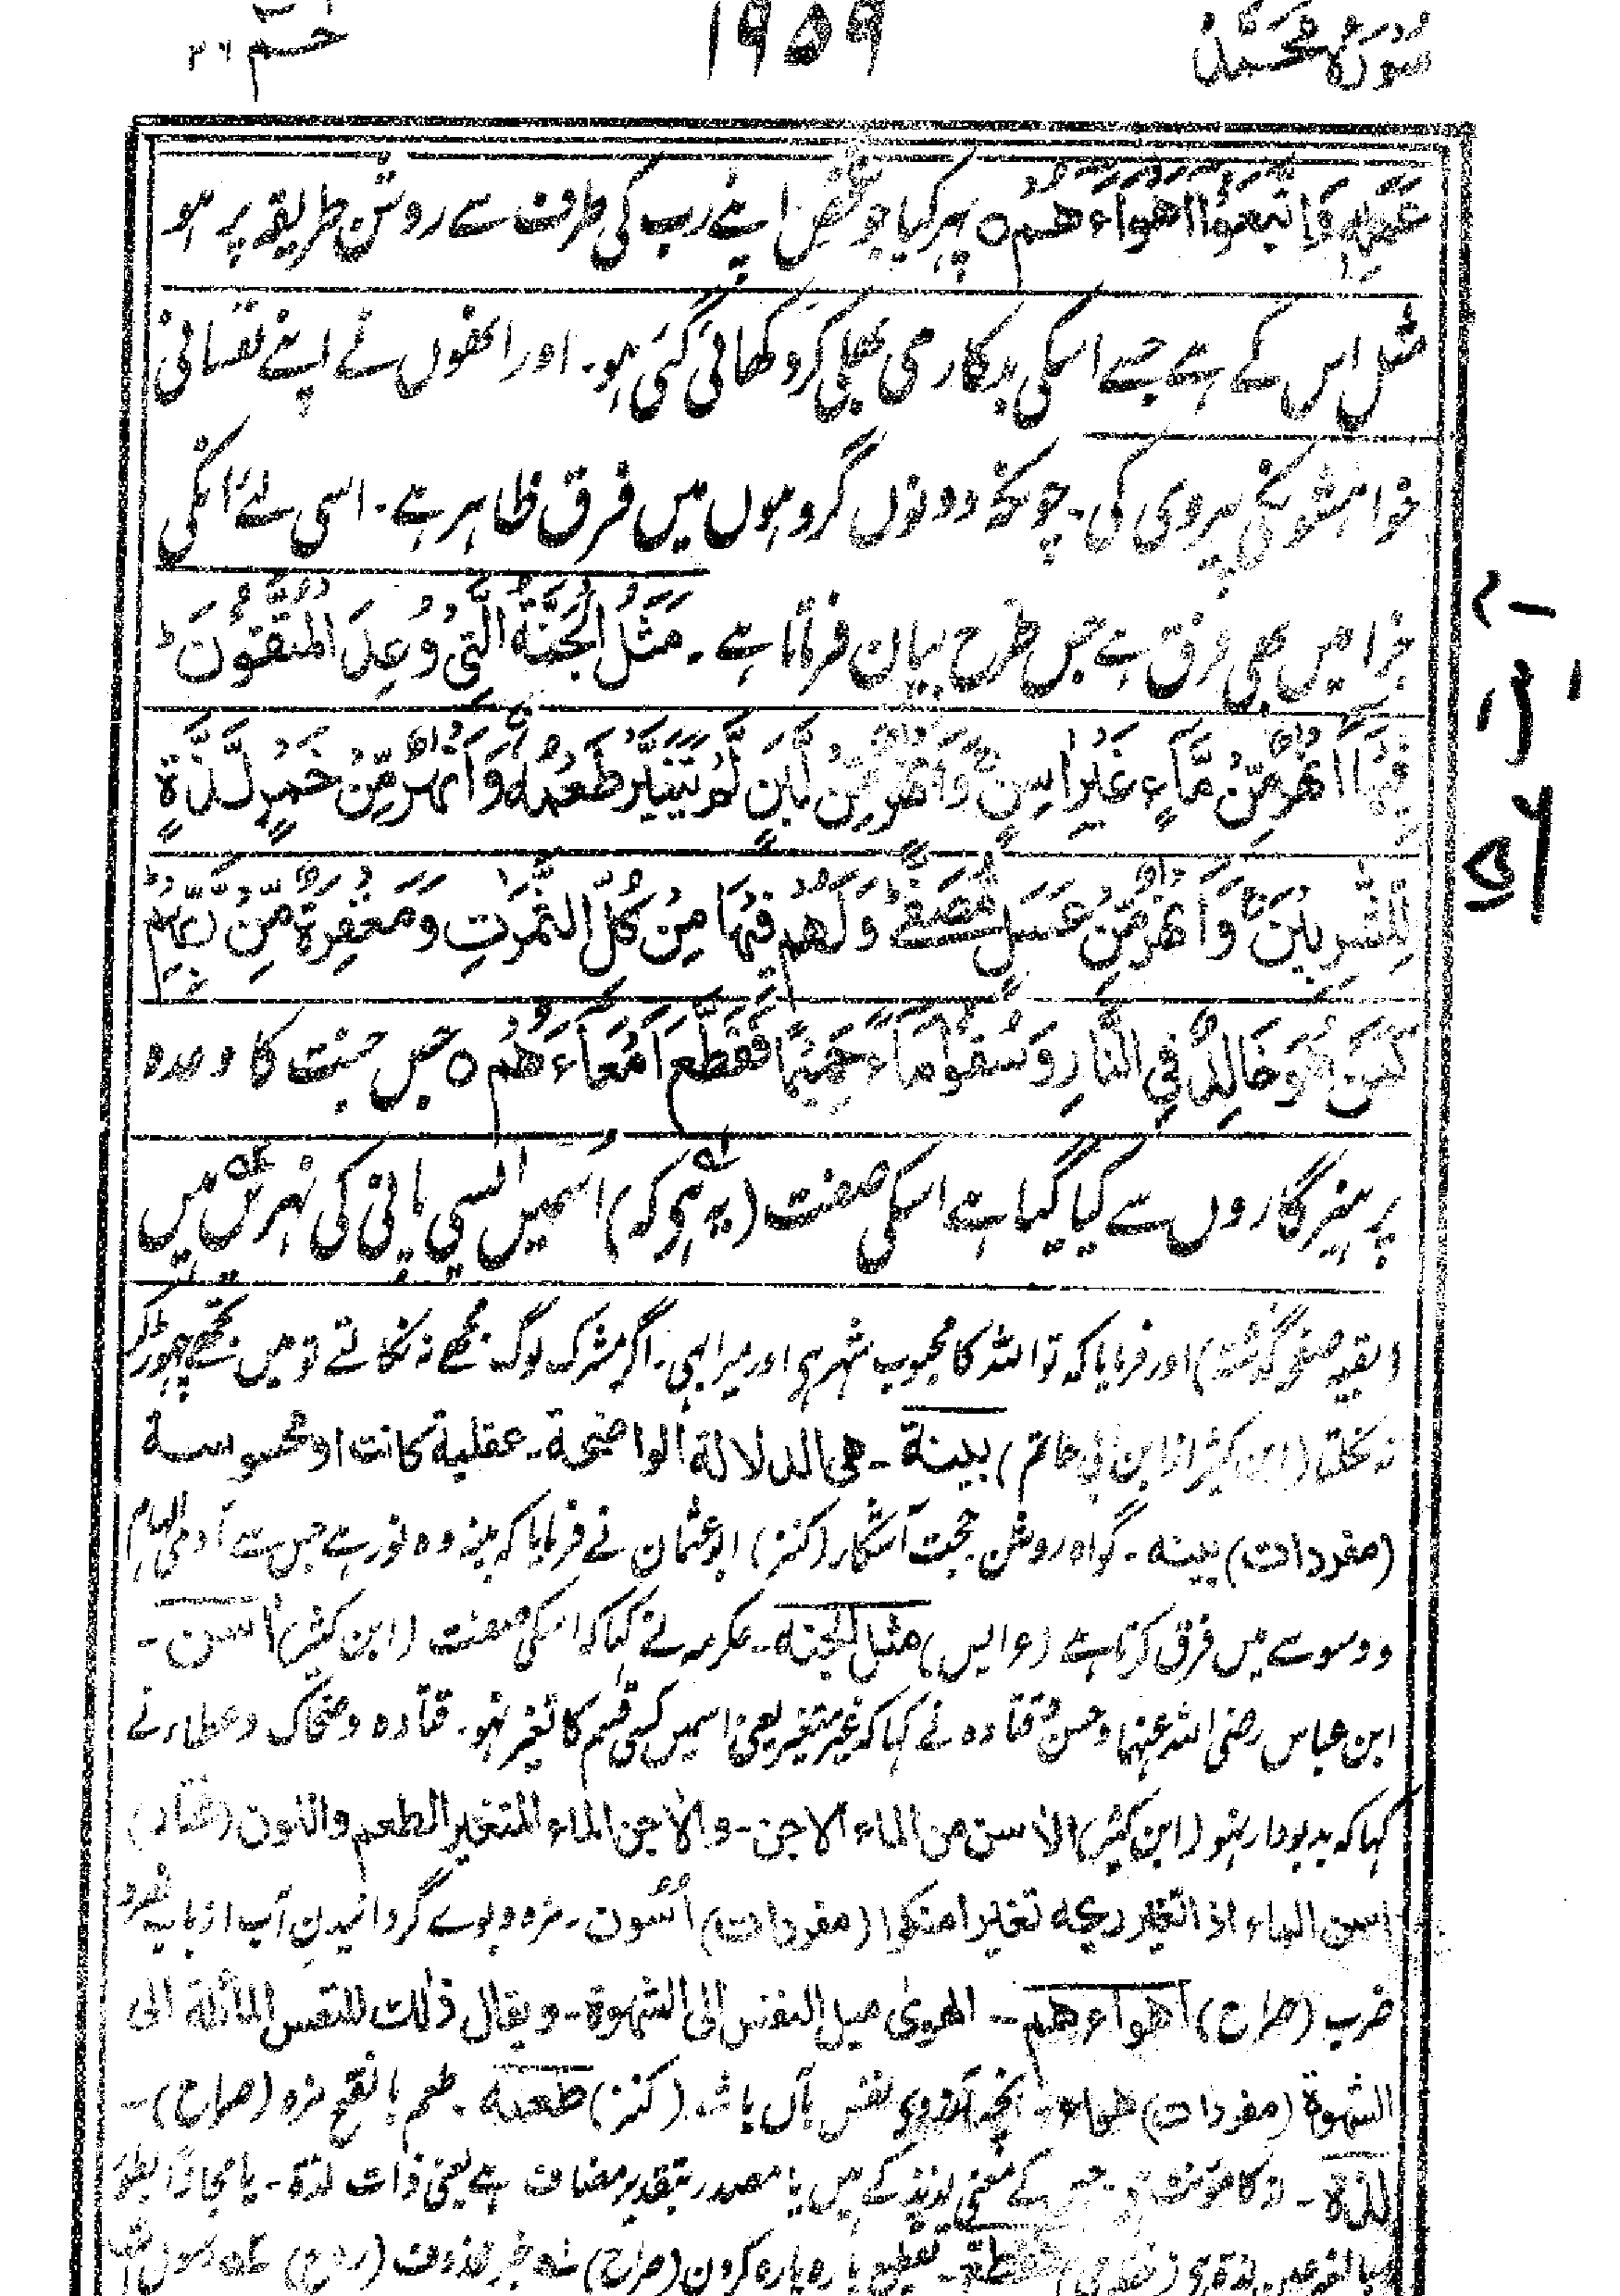 سُوْرَۃُ مُحَمَّدْ
۱۹۵۹
حٰـمٓ ۲۶
عَمَلِہٖ وَاتَّبَعُوْٓا اَھْوَآءَھُمْ ٥ پھر کیا جو شخص اپنے رب کی طرف سے روشن طریقہ پر ہو
مثل اس کے ہے جسے اسکی بدکاری بھلی کر دکھائی گئی ہو۔ اور انھوں نے اپنے نفسانی
خواہشونکی پیروی کی۔ چونکہ دونوں گروہوں میں فرق ظاہر ہے۔ اسی لئے انکی
جزا میں بھی فرق ہے جس طرح بیان فرماتا ہے۔ مَثَلُ الْجَنَّۃِ الَّتِیْ وُعِدَ الْمُتَّقُوْنَ ط
فِیْھَآ اَنْھٰرٌ مِّنْ مَّآءٍ غَیْرِ اٰسِنٍ وَاَنْھٰرٌ مِّنْ لَّبَنٍ لَّمْ یَتَغَیَّرْ طَعْمُہٗ وَاَنْھٰرٌ مِّنْ خَمْرٍ لَّذَّۃٍ
لِّلشّٰرِبِیْنَ وَاَنْھٰرٌ مِّنْ عَسَلٍ مُّصَفًّے وَلَھُمْ فِیْھَا مِنْ کُلِّ الثَّمَرٰتِ وَمَغْفِرَۃٌ مِّنْ رَّبِّھِمْ
کَمَنْ ھُوَ خَالِدٌ فِی النَّارِ وَسُقُوْا مَآءً حَمِیْمًا فَقَطَّعَ اَمْعَآءَھُمْ ٥ جس جنت کا وعدہ
پرہیزگاروں سے کیا گیا ہے اسکی صفت (یہ ہو کہ) اسمیں ایسی پانی کی نہریں ہیں
(بقیہ صفحہ گذشتہ) اور فرمایا کہ تو اللہ کا محبوب شہر ہی اور میرا بھی۔ اگر مشرک لوگ مجھے نہ نکالتے تو میں تجھے چھوڑکر
نہ نکلتا (ابن کثیر از ابن ابی حاتم) بینة۔ ھی الدلالة الواضحة۔ عقلیة کانت او محسوسة
(مفردات) بینہ۔ گواہ روشن حجت آشکار (کنز) ابوعثمان نے فرمایا کہ بینہ وہ نور ہے جس سے آدمی الہام
و وسوسے میں فرق کرتا ہے (عرایس) مثل الجنة۔ عکرمہ نے کہا کہ اسکی صفت (ابن کثیر) اٰسن۔
ابن عباس رضی اللہ عنہما وحسن وقتادہ نے کہا کہ غیر متغیر یعنی اسمیں کسی قسم کا تغیر نہو۔ قتادہ وضحاک وعطا نے
کہا کہ بدبودار نہو (ابن کثیر) الاٰسن من الماء الاجن۔ والاجن الماء المتغیر الطعم واللون (مختار)
اسن الماء اذا تغیر ریحہ تغیرا منکرا (مفردات) اُسُون۔ مزہ وبوے گردانیدن آب از باب نصر و
ضرب (صراح) اھواءھم۔ الھویٰ میل النفس الی الشھوة۔ ویقال ذٰلک للنفس المائلة الی
الشھوة (مفردات) ھواء۔ آنچہ آرزوی نفس بآں باشد (کنز) طعمہ۔ طعم بالفتح مزہ (صراح)۔
لذة۔ لذ کا مونث ہی جس کے معنی لذیذ کے ہیں یا مصدر بتقدیر مضاف ہے یعنی ذات لذة۔ یا مجازاً بطور
فقطع۔ تقطیع پارہ پارہ کردن (صراح) خبر محذوف (روح) رسول